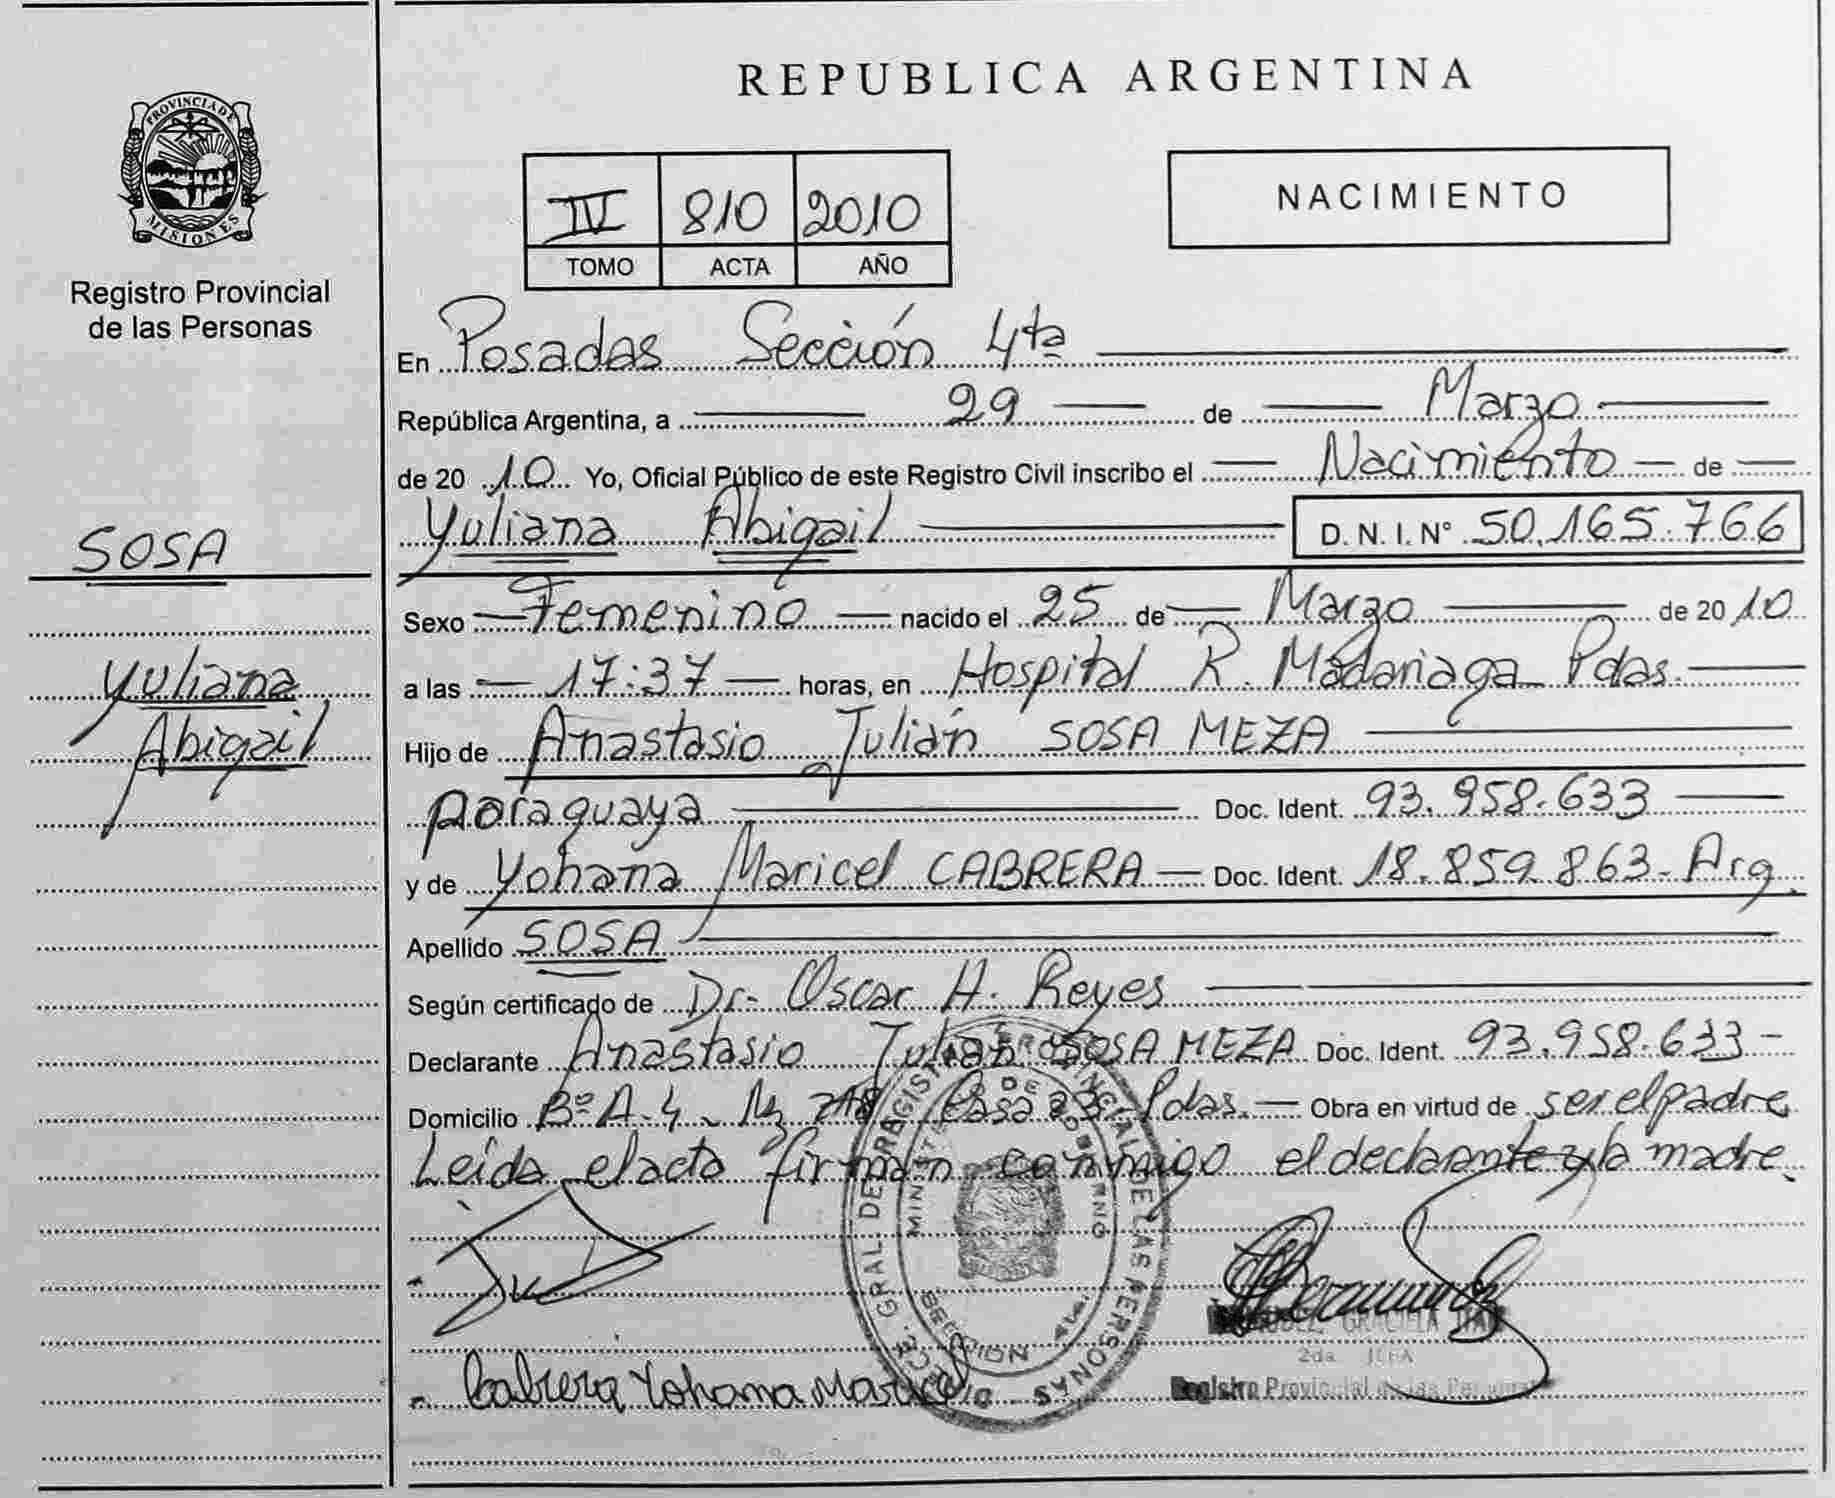 PROVINCIA DE
MISIONES
Registro Provincial
de las Personas
SOSA
Yuliana
Abigail
REPUBLICA ARGENTINA
IV 810 2010
TOMO ACTA AÑO
NACIMIENTO
En Posadas Sección 4ta
República Argentina, a 29 de Marzo
de 20 10 Yo, Oficial Público de este Registro Civil inscribo el Nacimiento de
Yuliana Abigail D. N. I. N° 50.165.766
Sexo Femenino nacido el 25 de Marzo de 20 10
a las 17:37 horas, en Hospital R. Madariaga Pdas.
Hijo de Anastasio Julián SOSA MEZA
paraguaya Doc. Ident. 93.958.633
y de Yohana Maricel CABRERA Doc. Ident. 18.859.863- Arg.
Apellido SOSA
Según certificado de Dr. Oscar A. Reyes
Declarante Anastasio Julián SOSA MEZA Doc. Ident. 93.958.633-
Domicilio B° A.4. Mz Casa Pdas. Obra en virtud de ser el padre
Leída el acta firman conmigo el declarante y la madre.
Cabrera Yohana Maricel
GRACIELA
2da. JEFA
Registro Provincial de las Personas